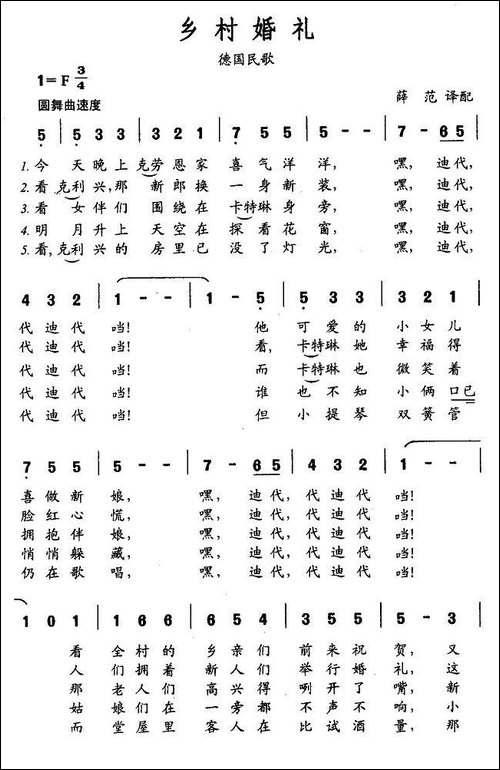 乡村婚礼
德国民歌
1=F 3/4
圆舞曲速度
薛 范 译配
5 | 5 3 3 | 3 2 1 | 7 5 5 | 5 - - | 7 - 6 5 |
1.今 天晚上 克劳恩家 喜气洋洋, 嘿,迪代,
2.看 克利兴,那 新郎换 一身新装, 嘿,迪代,
3.看 女伴们 围绕在 卡特琳身旁, 嘿,迪代,
4.明 月升上 天空在 探看花窗, 嘿,迪代,
5.看,克利兴的 房里已 没了灯光, 嘿,迪代,
4 3 2 | 1 - - | 1 - 5 | 5 3 3 | 3 2 1 |
代迪代 当! 他 可爱的 小女儿
代迪代 当! 看, 卡特琳她 幸福得
代迪代 当! 而 卡特琳也 微笑着
代迪代 当! 谁 也不知 小俩口已
代迪代 当! 但 小提琴 双簧管
7 5 5 | 5 - - | 7 - 6 5 | 4 3 2 | 1 - - |
喜做新 娘, 嘿, 迪代,代迪代 当!
脸红心 慌, 嘿, 迪代,代迪代 当!
拥抱伴 娘, 嘿, 迪代,代迪代 当!
悄悄躲 藏, 嘿, 迪代,代迪代 当!
仍在歌 唱, 嘿, 迪代,代迪代 当!
1 0 1 | 1 6 6 | 6 5 4 | 3 5 5 | 5 - 3 |
看 全村的 乡亲们 前来祝 贺,又
人 们拥着 新人们 举行婚 礼,这
那 老人们 高兴得 咧开了 嘴,新
姑 娘们在 一旁都 不声不 响,小
而 堂屋里 客人在 比试酒 量,那